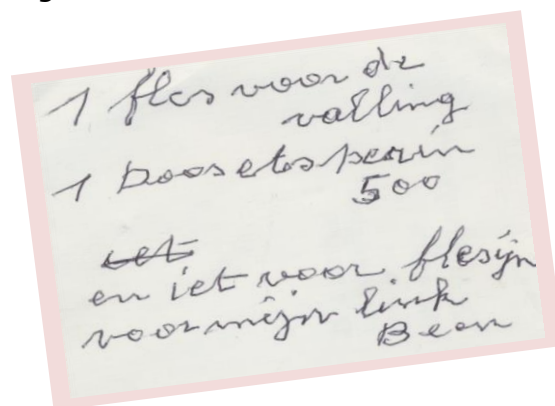 1 fles voor de
valling
1 Doos etosperin
500
iet
en iet voor flesijn
voor mijn link
Been